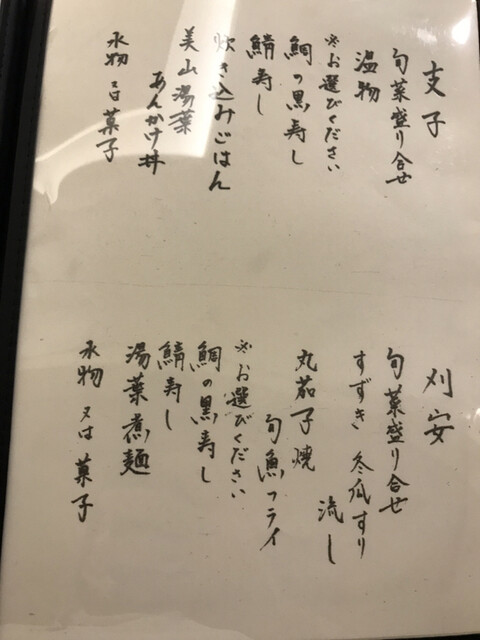 支子
旬菜盛り合せ
温物
※お選びください
鯛の黒寿し
鯖寿し
炊き込みごはん
美山湯葉
あんかけ丼
水物 又は 菓子
刈安
旬菜盛り合せ
すずき 冬瓜すり
流し
丸茄子焼
旬魚フライ
※お選びください
鯛の黒寿し
鯖寿し
湯葉煮麺
水物 又は 菓子